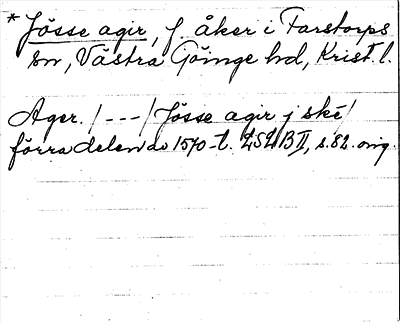 * Jösse agir, f. åker i Farstorps
sn, Västra Göinge hd, Krist. l.
Ager. / - - - / Jösse agir j ske /
förra delen av 1570-t. LSLB II, s. 82. orig.